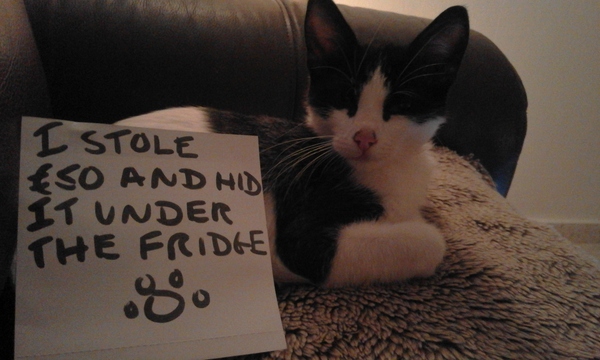 I STOLE
£50 AND HID
IT UNDER
THE FRIDGE